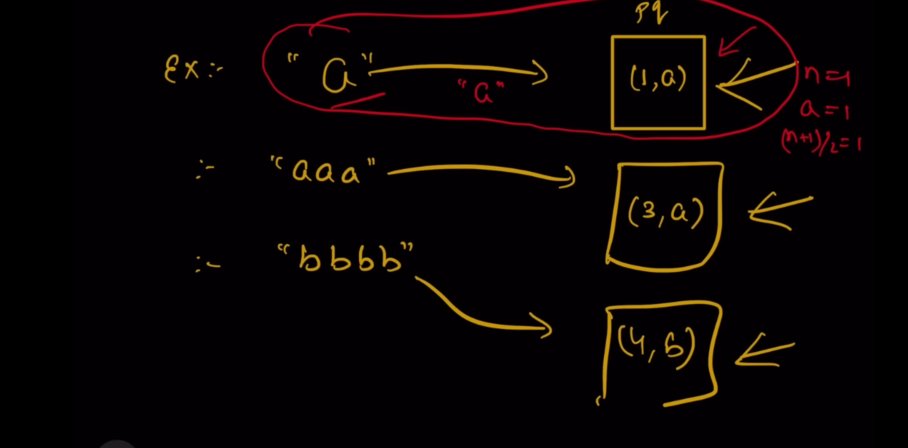 pq
Ex:- "a" "a" (1,a)
n=1
a=1
(n+1)/2=1
:- "aaa" (3,a)
:- "bbbb"
(4,b)